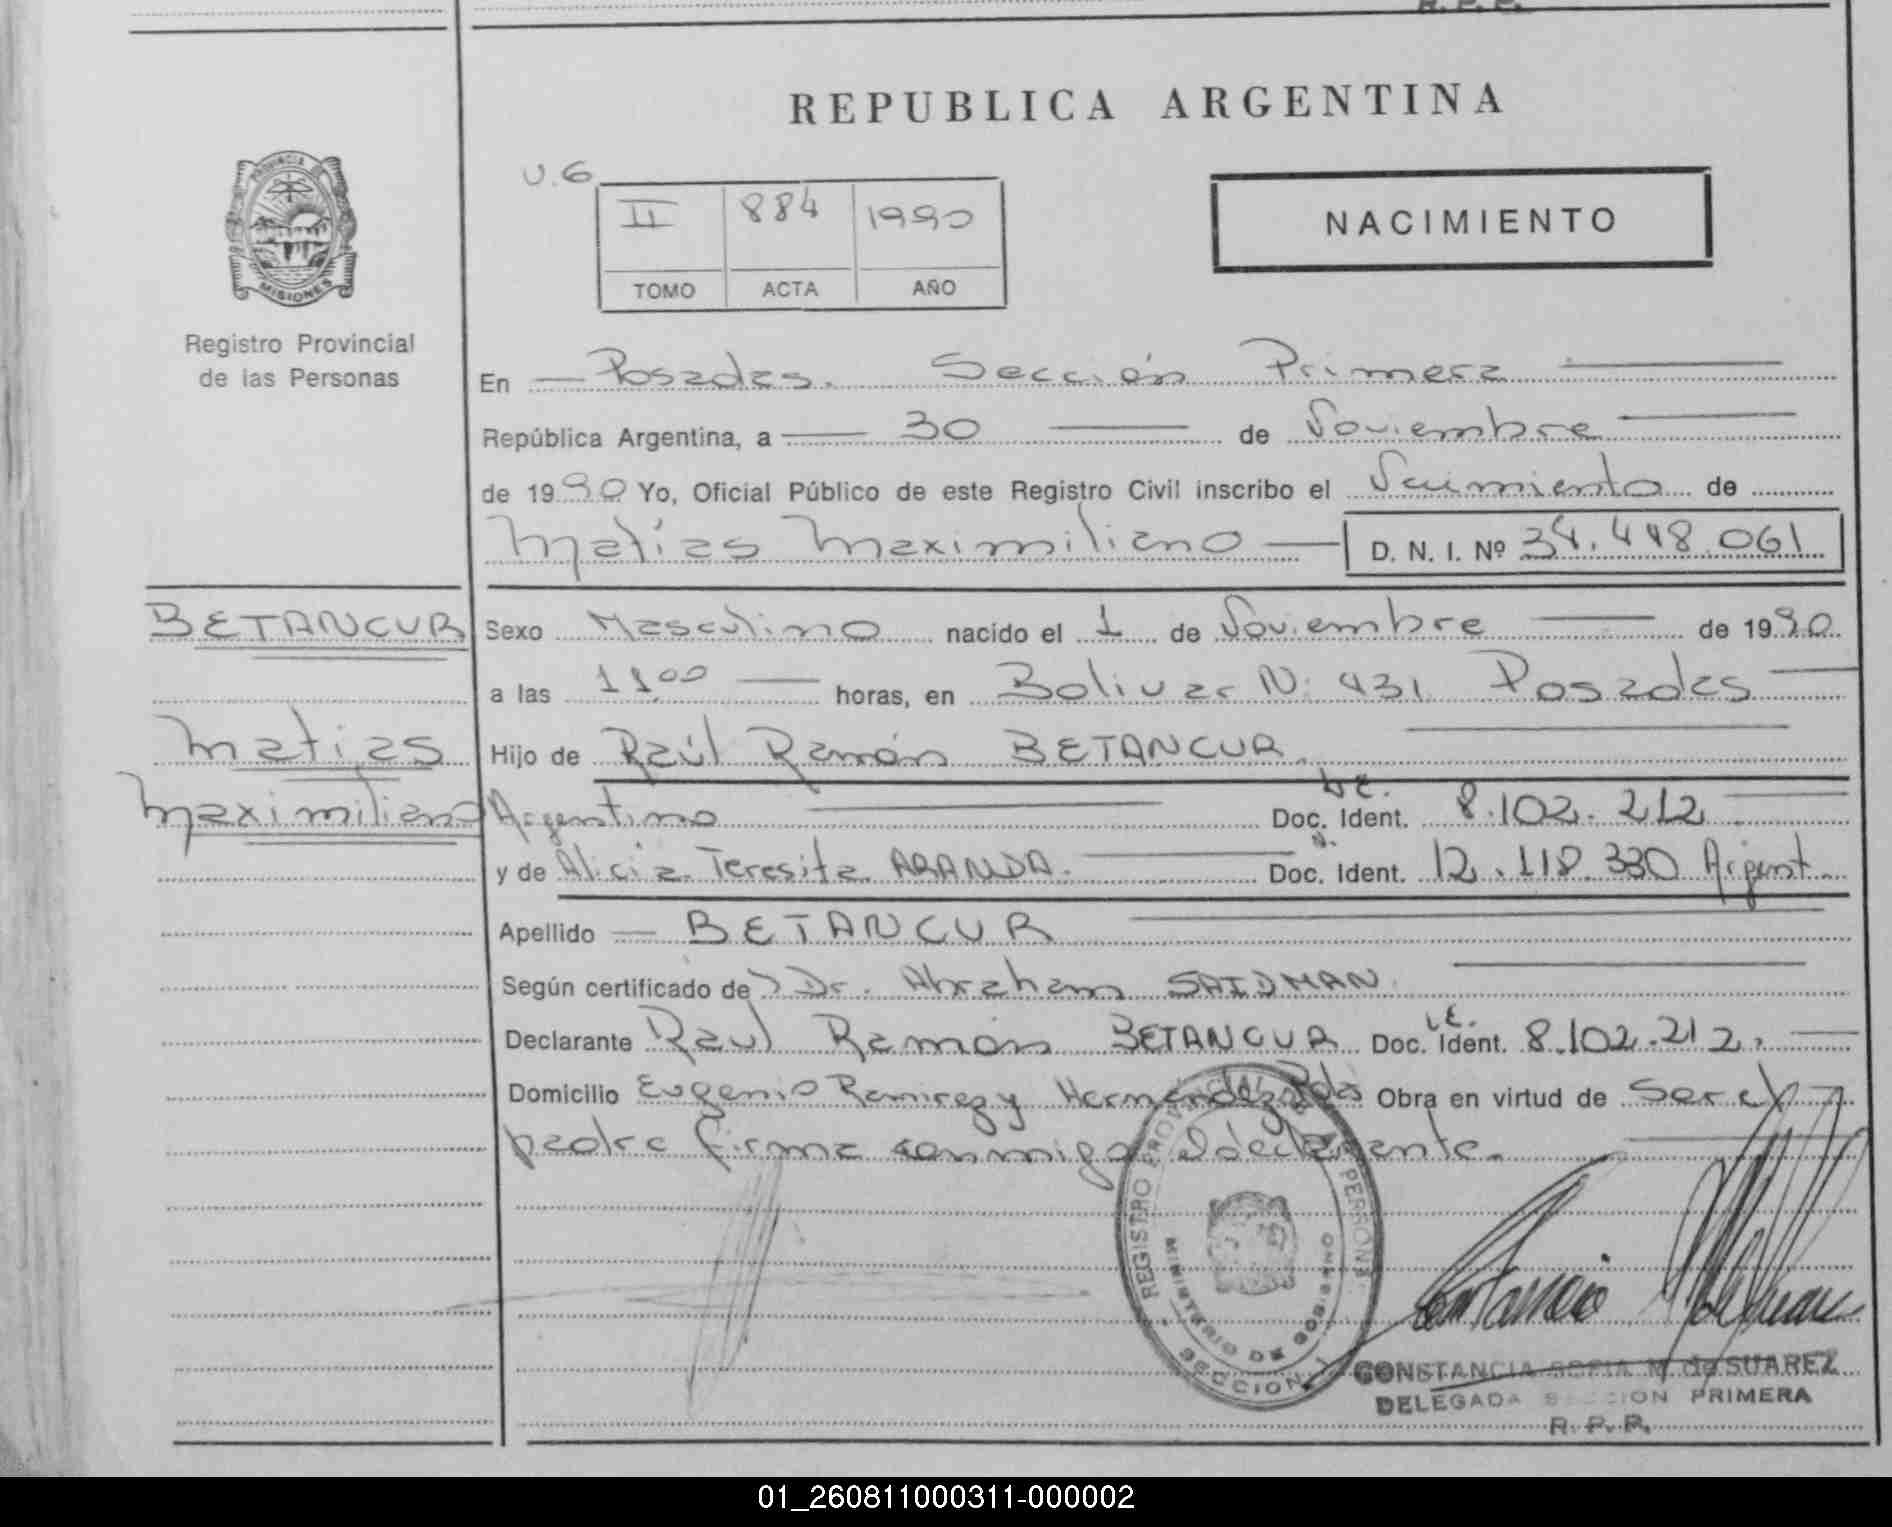 R. P. P.
REPUBLICA ARGENTINA
PROVINCIA
MISIONES
Registro Provincial
de las Personas
U.6
II 884 1990
TOMO ACTA AÑO
NACIMIENTO
En Posadas. Sección Primera
República Argentina, a 30 de Noviembre
de 1990 Yo, Oficial Público de este Registro Civil inscribo el Nacimiento de
Matías Maximiliano D. N. I. Nº 34.448.061
BETANCUR
Matias
Maximiliano
Sexo Masculino nacido el 1 de Noviembre de 1990
a las 11,00 horas, en Bolivar N: 431 Posadas
Hijo de Raúl Ramón BETANCUR.
Argentino Doc. Ident. L.E. 8.102.212
y de Alicia Teresita ARANDA. Doc. Ident. 12.118.330 Argent.
Apellido BETANCUR
Según certificado de Dr. Abraham SAIDMAN.
Declarante Raul Ramón BETANCUR Doc. Ident. L.E. 8.102.212.
Domicilio Eugenio Ramirez y Hernandez Pdas Obra en virtud de ser el
padre firma conmigo el declarante.
REGISTRO PROVINCIAL DE PERSONAS
MINISTERIO DE GOBIERNO
SECCION 1
CONSTANCIA SOFIA M. de SUAREZ
DELEGADA SECCION PRIMERA
R. P. P.
01_260811000311-000002